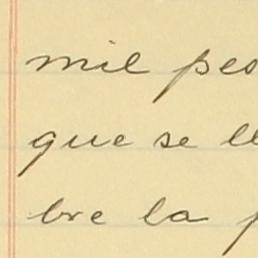 mil pes
que se ll
bre la p